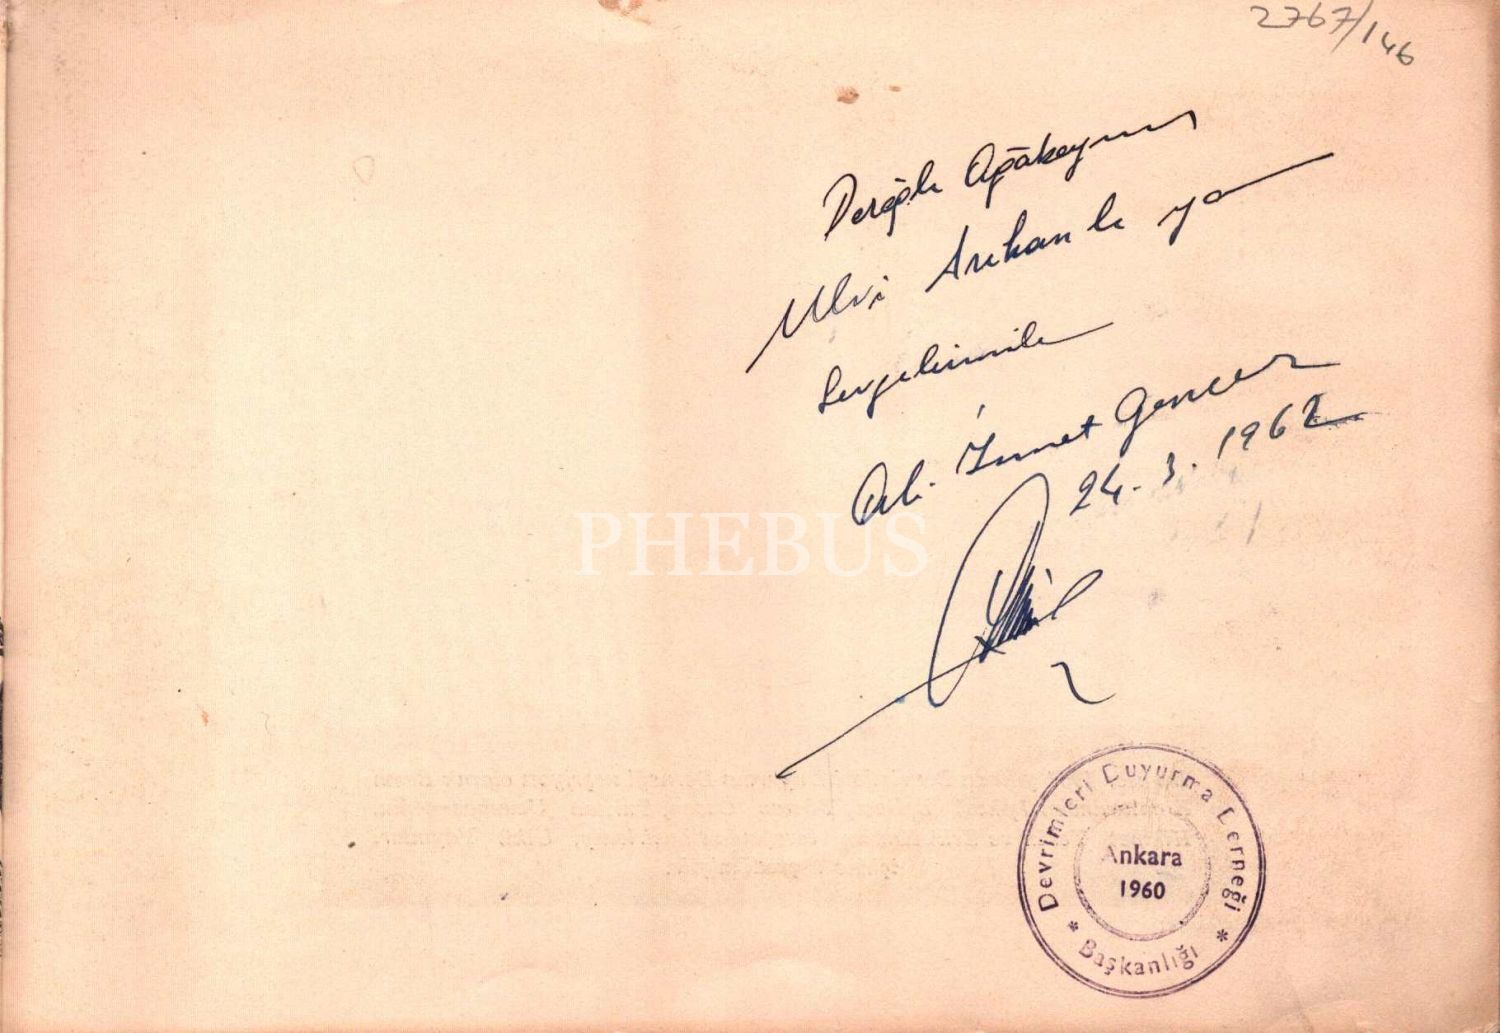 2767/146
Değerli Ağabeyim
Ulvi Arıkanlı ya
Sevgilerimle
Ali İsmet Gencer
24.3.1962
PHEBUS
Devrimleri Duyurma Derneği
Ankara
1960
* Başkanlığı *